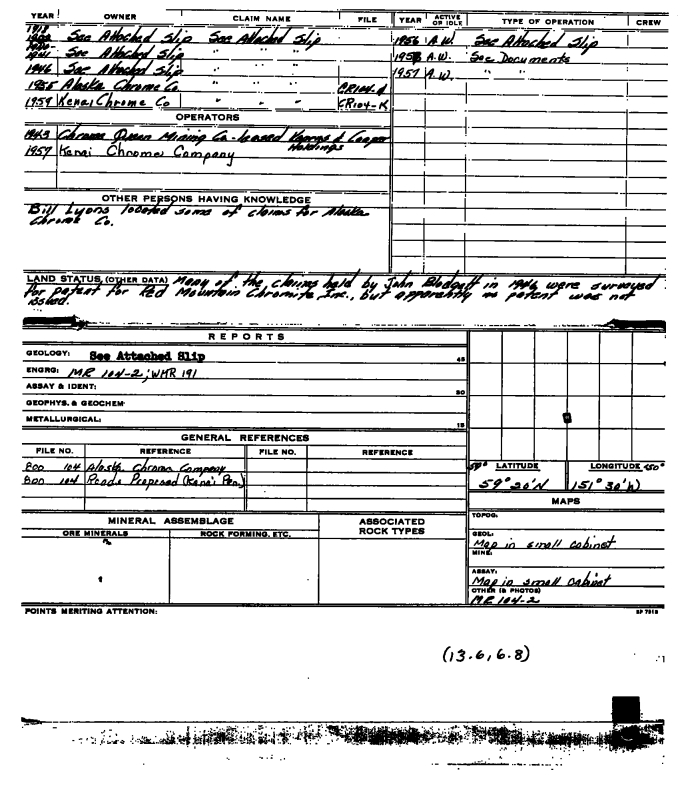 YEAR OWNER CLAIM NAME FILE YEAR ACTIVE OR IDLE TYPE OF OPERATION CREW
See Attached Slip See Attached Slip 1956 A.W. See Attached Slip
1941 See Attached Slip " " " A.W. See Documents
1946 See Attached Slip " " " 1957 A.W. " "
1955 Alaska Chrome Co. " " " CR104-A
1959 Kenai Chrome Co " " " CR104-K
OPERATORS
1943 Chrome Queen Mining Co - leased & Cooper
Holdings
1957 Kenai Chrome Company
OTHER PERSONS HAVING KNOWLEDGE
Bill Lyons located some of claims for Alaska
Chrome Co.
LAND STATUS (OTHER DATA) Many of the claims held by John Blodgett in 1946 were surveyed
for patent for Red Mountain Chromite Inc., but apparently no patent was not
issued.
REPORTS
GEOLOGY: See Attached Slip 45
ENGRG: MR 104-2; WMR 191
ASSAY & IDENT: 30
GEOPHYS. & GEOCHEM.
METALLURGICAL: 15
GENERAL REFERENCES
FILE NO. REFERENCE FILE NO. REFERENCE
800 104 Alaska Chrome Company
800 104 Roads Proposed (Kenai Pen.)
59° LATITUDE LONGITUDE 150°
59° 20'N 151° 30'W
MAPS
MINERAL ASSEMBLAGE ASSOCIATED ROCK TYPES
ORE MINERALS ROCK FORMING, ETC.
TOPOG.
GEOL:
Map in small cabinet
MINE:
ASSAY:
Map in small cabinet
OTHER (& PHOTOS)
MR 104-2
POINTS MERITING ATTENTION:
(13.6, 6.8)